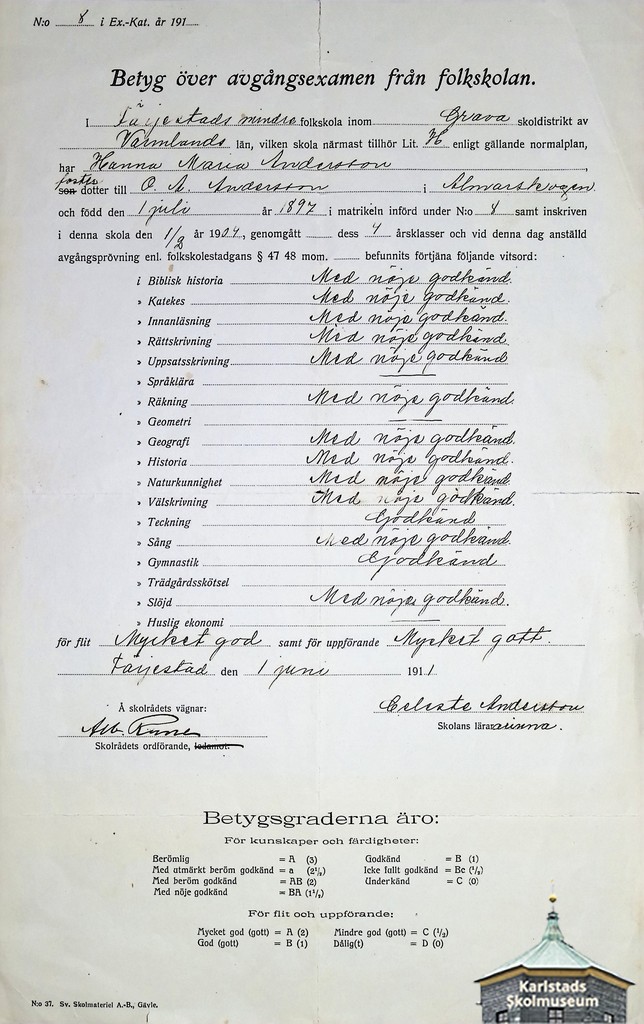 N:o 8 i Ex.-Kat. år 191
Betyg över avgångsexamen från folkskolan.
I Färjestads mindre folkskola inom Grava skoldistrikt av
Varmlands län, vilken skola närmast tillhör Lit. H enligt gällande normalplan,
har Hanna Maria Andersson
foster
son dotter till O. A. Andersson i Almarskogen
och född den 1 juli år 1897 i matrikeln införd under N:o 8 samt inskriven
i denna skola den 1/2 år 1904, genomgått dess 4 årsklasser och vid denna dag anställd
avgångsprövning enl. folkskolestadgans § 47 48 mom. befunnits förtjäna följande vitsord:
i Biblisk historia Med nöje godkänd.
» Katekes Med nöje godkänd.
» Innanläsning Med nöje godkänd.
» Rättskrivning Med nöje godkänd.
» Uppsatsskrivning Med nöje godkänd
» Språklära —
» Räkning Med nöje godkänd.
» Geometri —
» Geografi Med nöje godkänd.
» Historia Med nöje godkänd.
» Naturkunnighet Med nöje godkänd
» Välskrivning Med nöje godkänd.
» Teckning Godkänd
» Sång Med nöje godkänd.
» Gymnastik Godkänd
» Trädgårdsskötsel
» Slöjd Med nöje godkänd.
» Huslig ekonomi —
för flit Mycket god samt för uppförande Mycket gott.
Färjestad den 1 juni 1911
Å skolrådets vägnar:
Celeste Andersson
Alb. Rune
Skolans lärarinna.
Skolrådets ordförande, ledamot.
Betygsgraderna äro:
För kunskaper och färdigheter:
Berömlig = A (3) Godkänd = B (1)
Med utmärkt beröm godkänd = a (2½) Icke fullt godkänd = Bc (½)
Med beröm godkänd = AB (2) Underkänd = C (0)
Med nöje godkänd = BA (1½)
För flit och uppförande:
Mycket god (gott) = A (2) Mindre god (gott) = C (½)
God (gott) = B (1) Dålig(t) = D (0)
Karlstads
Skolmuseum
N:o 37. Sv. Skolmateriel A.-B., Gävle.